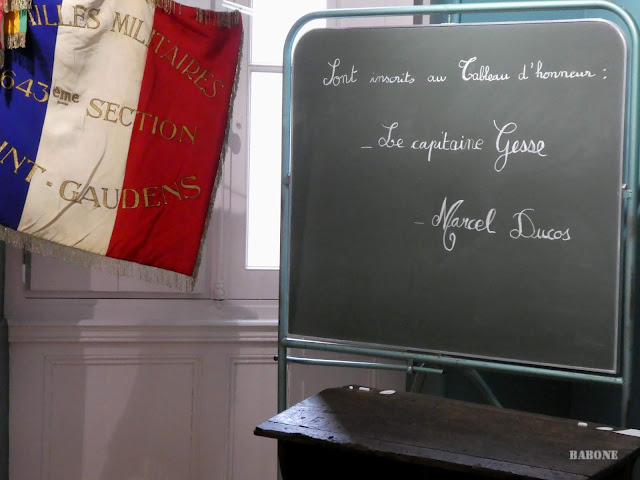 AILLES MILITAIRES
643ème SECTION
INT-GAUDENS
Sont inscrits au Tableau d'honneur :
_ Le capitaine Gesse
_ Marcel Ducos
BABONE